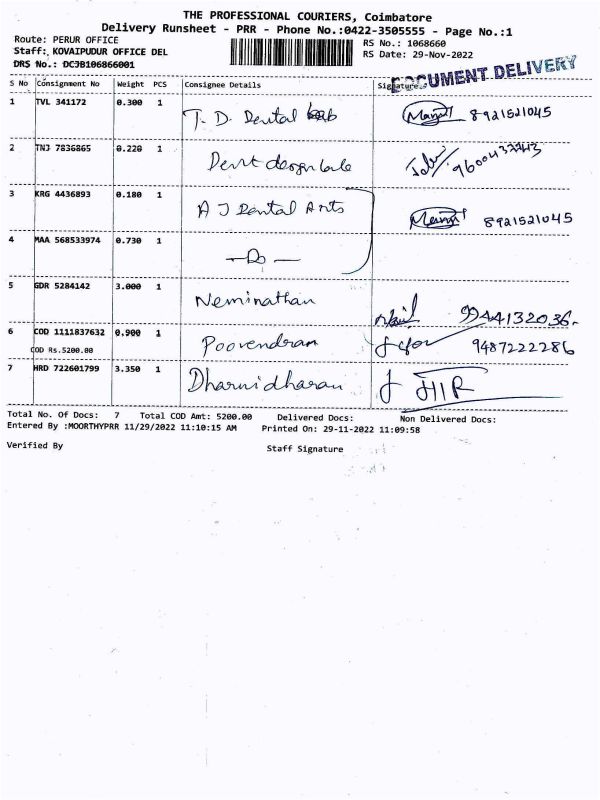 THE PROFESSIONAL COURIERS, Coimbatore
Delivery Runsheet - PRR - Phone No.:0422-3505555 - Page No.:1
Route: PERUR OFFICE
RS No.: 1068660
Staff: KOVAIPUDUR OFFICE DEL
RS Date: 29-Nov-2022
DRS No.: DCJB106866001
DOCUMENT DELIVERY
S No Consignment No Weight PCS Consignee Details Signature
1 TVL 341172 0.300 1 T. D. Dental Lab 8921521045
2 TNJ 7836865 0.220 1 Dent design
3 KRG 4436893 0.180 1 A J Dental Arts 8921521045
4 MAA 568533974 0.730 1 —Do—
5 GDR 5284142 3.000 1 Neminathan 9944132036
6 COD 1111837632 0.900 1 Poovendran 9487222286
COD Rs.5200.00
7 HRD 722601799 3.350 1 Dharnidharan
Total No. Of Docs: 7 Total COD Amt: 5200.00 Delivered Docs: Non Delivered Docs:
Entered By :MOORTHYPRR 11/29/2022 11:10:15 AM Printed On: 29-11-2022 11:09:58
Verified By Staff Signature